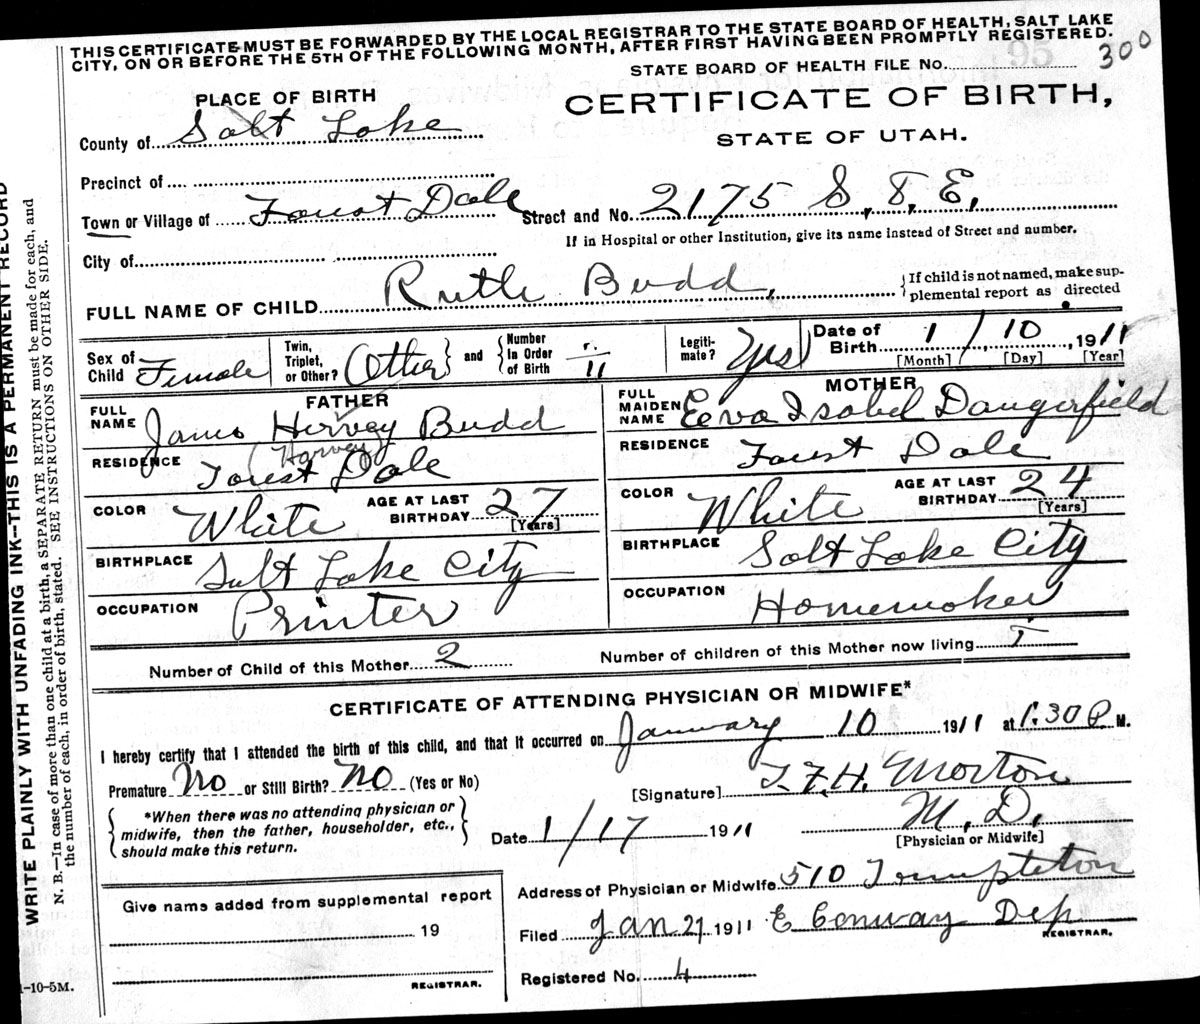 THIS CERTIFICATE MUST BE FORWARDED BY THE LOCAL REGISTRAR TO THE STATE BOARD OF HEALTH, SALT LAKE
CITY, ON OR BEFORE THE 5TH OF THE FOLLOWING MONTH, AFTER FIRST HAVING BEEN PROMPTLY REGISTERED.
STATE BOARD OF HEALTH FILE No. 300
PLACE OF BIRTH
CERTIFICATE OF BIRTH,
County of Salt Lake
STATE OF UTAH.
Precinct of
Town or Village of Forest Dale Street and No. 2175 S, 8, E,
If in Hospital or other Institution, give its name instead of Street and number.
City of
FULL NAME OF CHILD Ruth Budd, {If child is not named, make sup-
plemental report as directed
Sex of Child Female Twin, Triplet, or Other? (Other) and {Number In Order of Birth 11 Legiti-mate? Yes Date of Birth 1 / 10, 1911
[Month] [Day] [Year]
FATHER
MOTHER
FULL NAME James Hervey Budd
(Harvey)
FULL MAIDEN NAME Eeva Isabel Dangerfield
RESIDENCE Forest Dale
RESIDENCE Forest Dale
COLOR White AGE AT LAST BIRTHDAY 27 [Years]
COLOR White AGE AT LAST BIRTHDAY 24 [Years]
BIRTHPLACE Salt Lake City
BIRTHPLACE Salt Lake City
OCCUPATION Printer
OCCUPATION Homemaker
Number of Child of this Mother 2 Number of children of this Mother now living
CERTIFICATE OF ATTENDING PHYSICIAN OR MIDWIFE*
I hereby certify that I attended the birth of this child, and that it occurred on January 10 1911 at 1:30 P. M.
Premature No or Still Birth? No (Yes or No)
[Signature] F. H. Morton
M. D.
[Physician or Midwife]
{*When there was no attending physician or
midwife, then the father, householder, etc.,
should make this return.}
Date 1/17 1911
Address of Physician or Midwife 510 Templeton
Give name added from supplemental report
19
REGISTRAR.
Filed Jan 27 1911 E Conway Dep
REGISTRAR.
Registered No. 4
1-10-5M.
WRITE PLAINLY WITH UNFADING INK--THIS IS A PERMANENT RECORD
N. B.--In case of more than one child at a birth, a SEPARATE RETURN must be made for each, and
the number of each, in order of birth, stated. SEE INSTRUCTIONS ON OTHER SIDE.